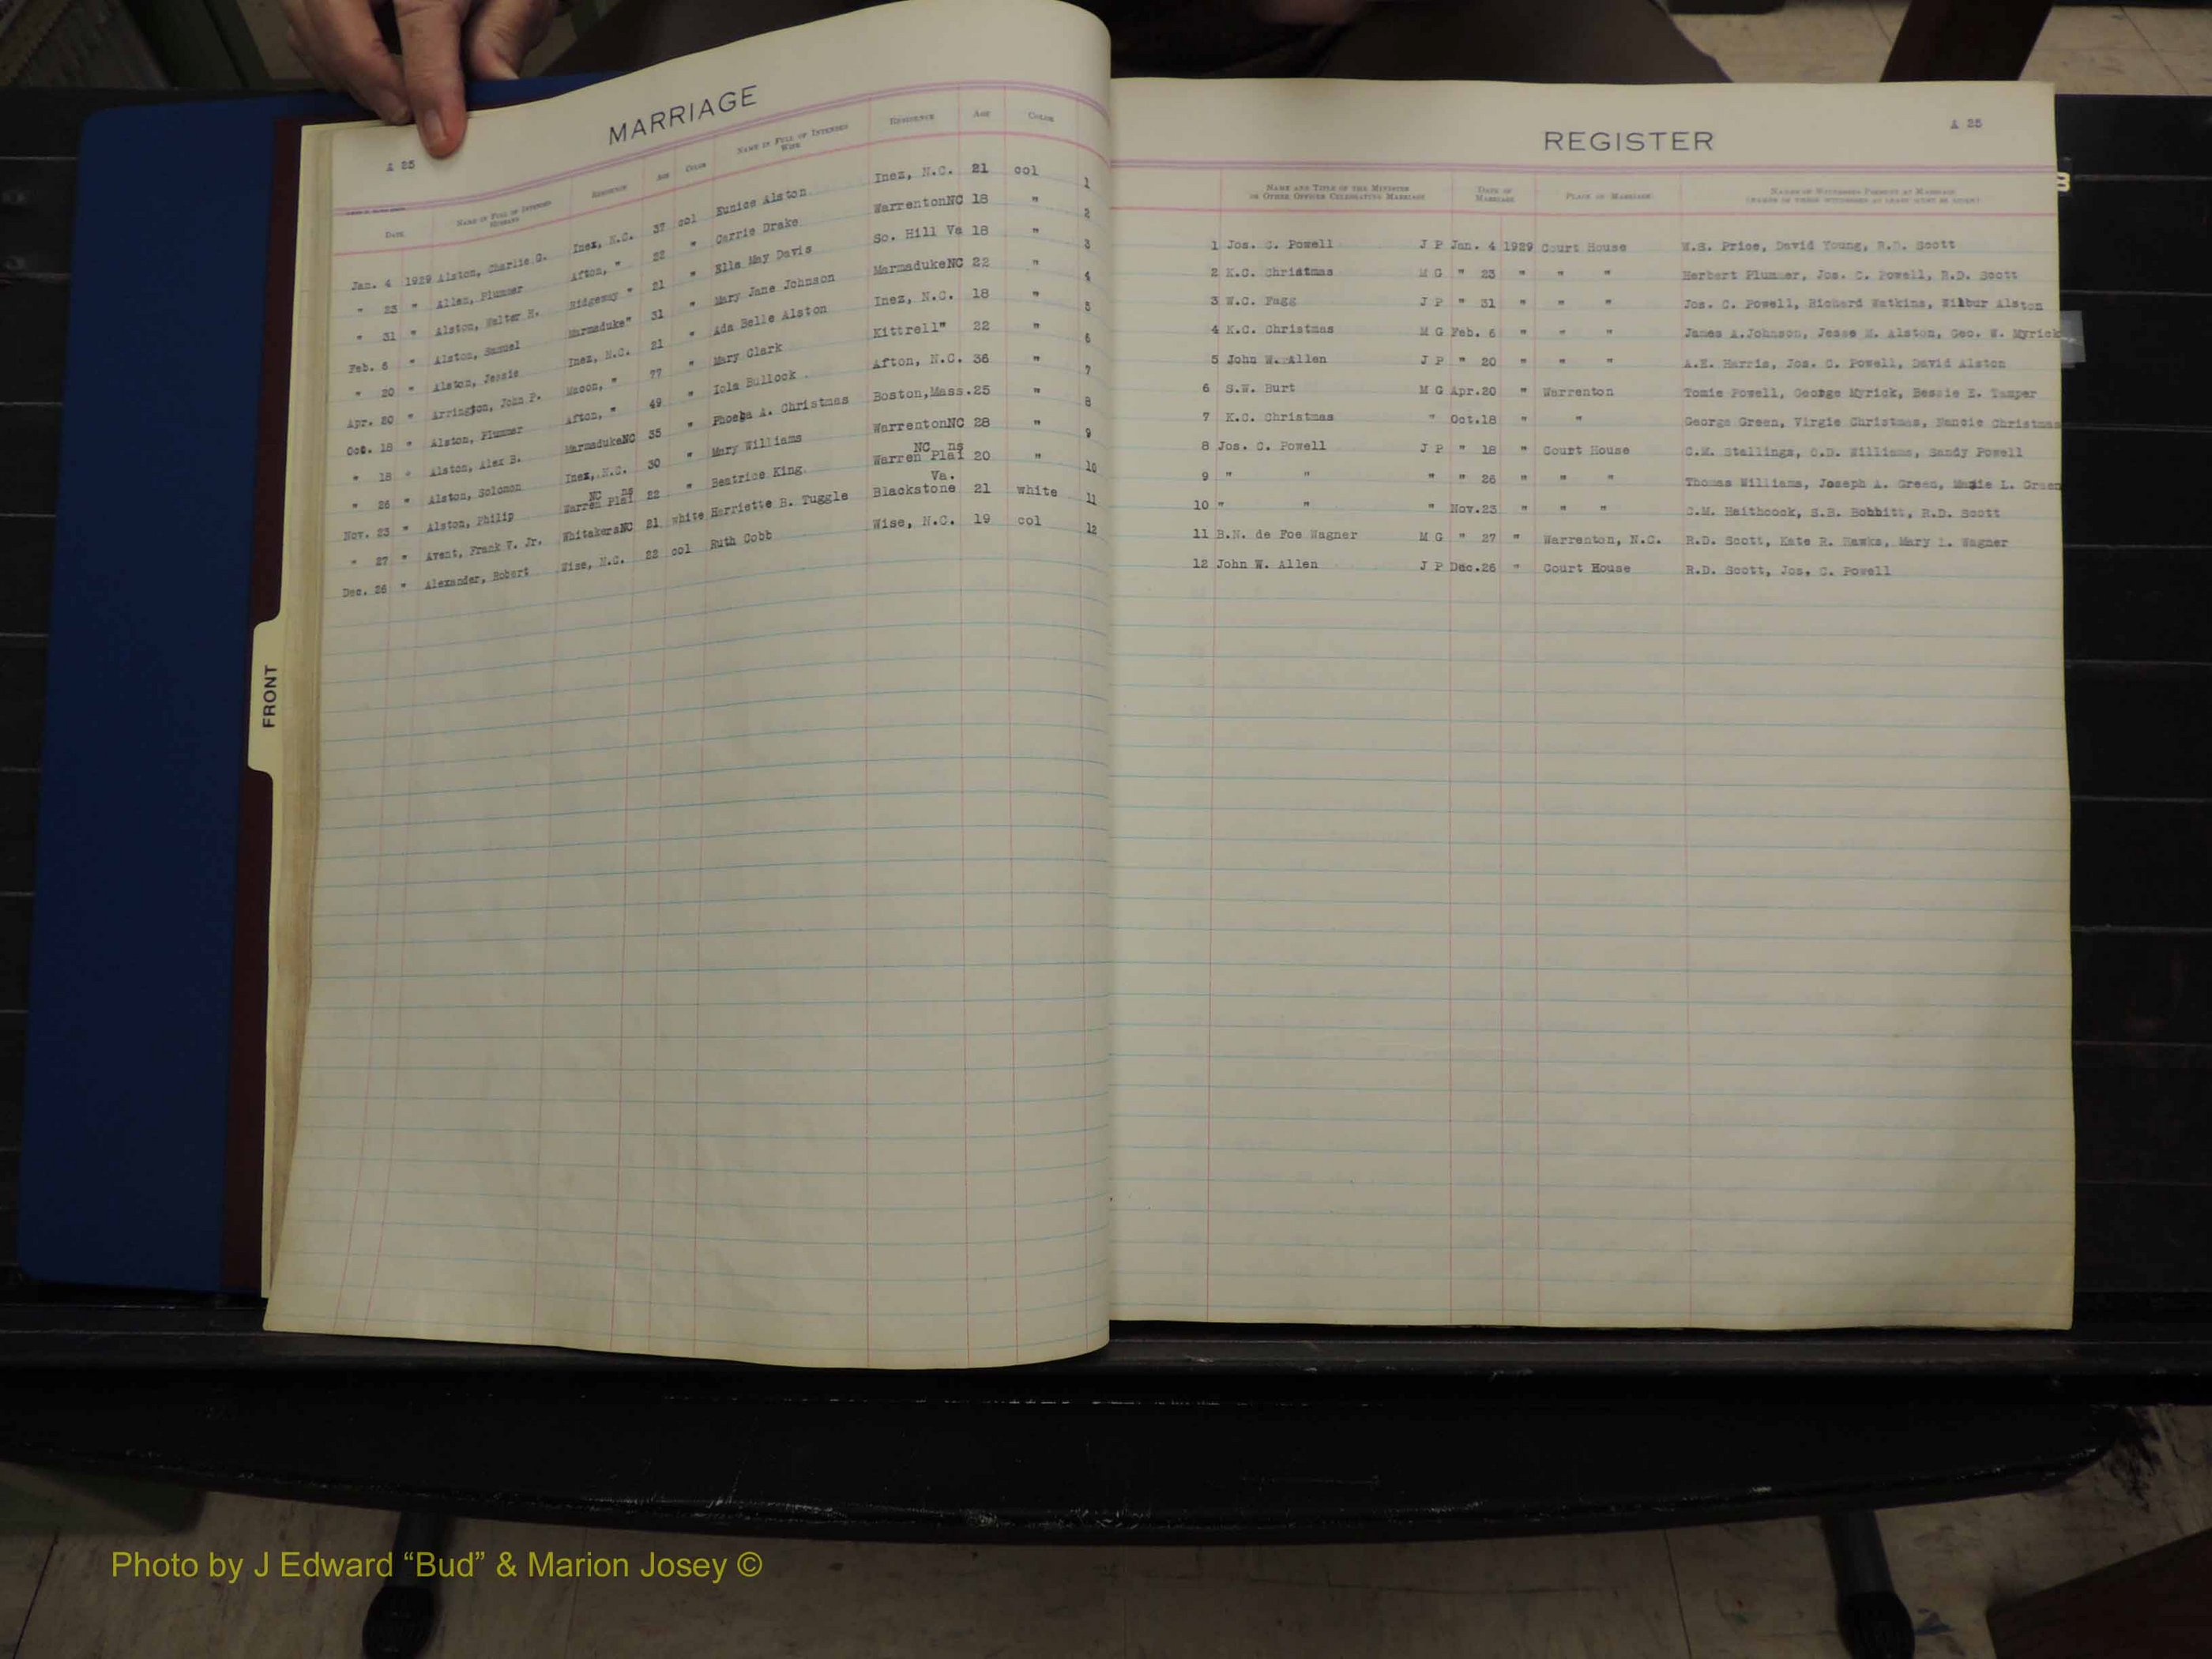 MARRIAGE
A 25
DATE NAME IN FULL OF INTENDED HUSBAND RESIDENCE AGE COLOR NAME IN FULL OF INTENDED WIFE RESIDENCE AGE COLOR
Jan. 4 1929 Alston, Charlie G. Inez, N.C. 37 col Eunice Alston Inez, N.C. 21 col 1
" 23 " Allen, Plummer Afton, " 22 " Carrie Drake WarrentonNC 18 " 2
" 31 " Alston, Walter H. Ridgeway " 21 " Ella May Davis So. Hill Va 18 " 3
Feb. 6 " Alston, Samuel Marmaduke" 31 " Mary Jane Johnson MarmadukeNC 22 " 4
" 20 " Alston, Jessie Inez, N.C. 21 " Ada Belle Alston Inez, N.C. 18 " 5
Apr. 20 " Arrington, John P. Macon, " 77 " Mary Clark Kittrell" 22 " 6
Oct. 18 " Alston, Plummer Afton, " 49 " Iola Bullock Afton, N.C. 36 " 7
" 18 " Alston, Alex B. MarmadukeNC 35 " Phoeba A. Christmas Boston,Mass.25 " 8
" 26 " Alston, Solomon Inez, N.C. 30 " Mary Williams WarrentonNC 28 " 9
NC ns NC ns
Nov. 23 " Alston, Philip Warren Plai 22 " Beatrice King Warren Plai 20 " 10
Va.
" 27 " Avent, Frank V. Jr. WhitakersNC 21 white Harriette B. Tuggle Blackstone 21 white 11
Dec. 26 " Alexander, Robert Wise, N.C. 22 col Ruth Cobb Wise, N.C. 19 col 12
REGISTER
A 25
NAME AND TITLE OF THE MINISTER OR OTHER OFFICER CELEBRATING MARRIAGE DATE OF MARRIAGE PLACE OF MARRIAGE NAMES OF WITNESSES PRESENT AT MARRIAGE
1 Jos. C. Powell J P Jan. 4 1929 Court House W.S. Price, David Young, R.D. Scott
2 K.C. Christmas M G " 23 " " " Herbert Plummer, Jos. C. Powell, R.D. Scott
3 W.C. Fagg J P " 31 " " " Jos. C. Powell, Richard Watkins, Wilbur Alston
4 K.C. Christmas M G Feb. 6 " " " James A.Johnson, Jesse M. Alston, Geo. W. Myrick
5 John W. Allen J P " 20 " " " A.E. Harris, Jos. C. Powell, David Alston
6 S.W. Burt M G Apr.20 " Warrenton Tomie Powell, George Myrick, Bessie E. Tamper
7 K.C. Christmas " Oct.18 " " George Green, Virgie Christmas, Nancie Christmas
8 Jos. C. Powell J P " 18 " Court House C.M. Stallings, O.D. Williams, Sandy Powell
9 " " " " 26 " " " Thomas Williams, Joseph A. Green, L. Green
10 " " " Nov.23 " " " C.M. Haithcock, S.B. Bobbitt, R.D. Scott
11 B.N. de Foe Wagner M G " 27 " Warrenton, N.C. R.D. Scott, Kate R. Hawks, Mary L. Wagner
12 John W. Allen J P Dec.26 " Court House R.D. Scott, Jos. C. Powell
FRONT
Photo by J Edward “Bud” & Marion Josey ©